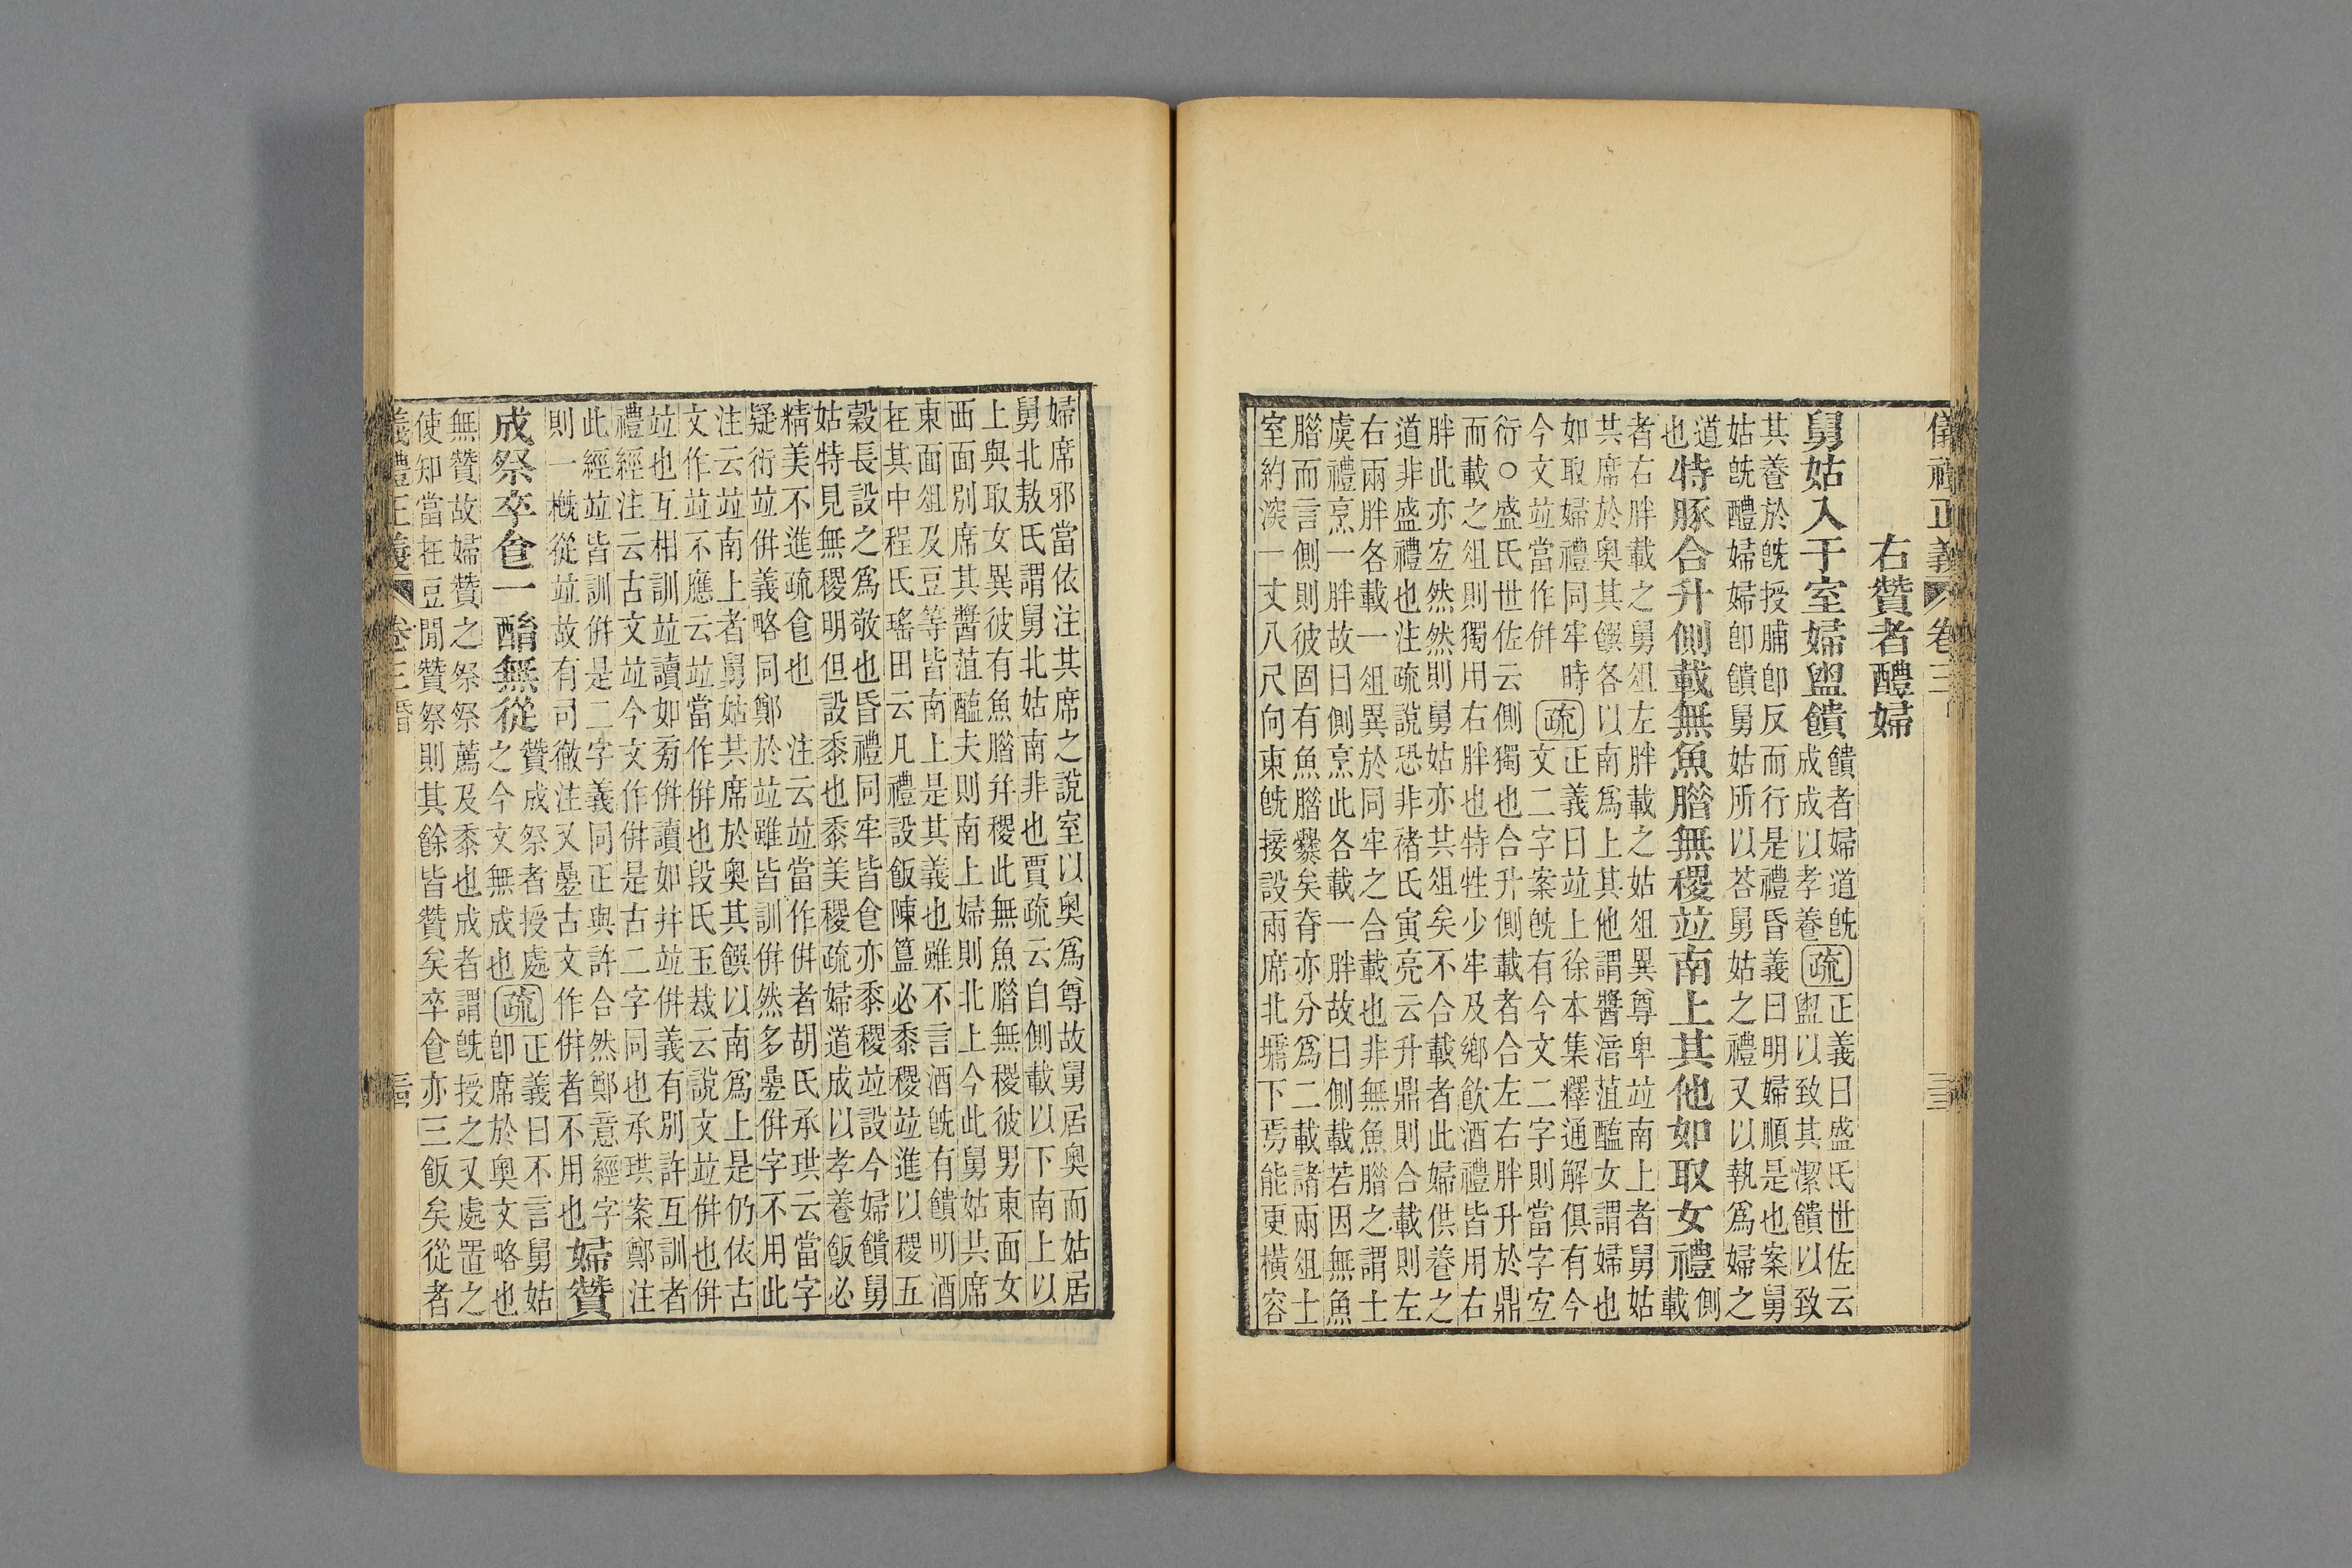 儀禮正義 卷三
右贊者醴婦
舅姑入于室婦盥饋
饋者婦道旣
成成以孝養
疏
正義曰盛氏世佐云
盥以致其潔饋以致
其養於旣授脯卽反而行是禮昏義曰明婦順是也案舅
姑旣醴婦婦卽饋舅姑所以荅舅姑之禮又以執爲婦之
道
也
特豚合升側載無魚腊無稷竝南上其他如取女禮
側
載
者右胖載之舅俎左胖載之姑俎異尊卑竝南上者舅姑
共席於奥其饌各以南爲上其他謂醬湆菹醢女謂婦也
如取婦禮同牢時
今文竝當作併
疏
正義曰竝上徐本集釋通解俱有今
文二字案旣有今文二字則當字宐
衍○盛氏世佐云側獨也合升側載者合左右胖升於鼎
而載之俎則獨用右胖也特牲少牢及鄉飮酒禮皆用右
胖此亦宐然然則舅姑亦共俎矣不合載者此婦供養之
道非盛禮也注疏說恐非褚氏寅亮云升鼎則合載則左
右兩胖各載一俎異於同牢之合載也非無魚腊之謂士
虞禮烹一胖故曰側烹此各載一胖故曰側載若因無魚
腊而言側則彼固有魚腊爨矣脊亦分爲二載諸兩俎士
室約深一丈八尺向東旣接設兩席北墉下焉能更橫容
婦席邪當依注其席之說室以奥爲尊故舅居奥而姑居
舅北敖氏謂舅北姑南非也賈疏云自側載以下南上以
上與取女異彼有魚腊幷稷此無魚腊無稷彼男東面女
西面別席其醬菹醢夫則南上婦則北上今此舅姑共席
東面俎及豆等皆南上是其義也雖不言酒旣有饋明酒
在其中程氏瑤田云凡禮設飯陳簋必黍稷竝進以稷五
穀長設之爲敬也昏禮同牢皆食亦黍稷竝設今婦饋舅
姑特見無稷明但設黍也黍美稷疏婦道成以孝養飯必
精美不進疏食也　注云竝當作併者胡氏承珙云當字
疑衍竝併義略同鄭於竝雖皆訓併然多疊併字不用此
注云竝南上者舅姑共席於奥其饌以南爲上是仍依古
文作竝不應云竝當作併也段氏玉裁云說文竝併也併
竝也互相訓竝讀如㫄併讀如幷竝併義有別許互訓者
禮經注云古文竝今文作併是古二字同也承珙案鄭注
此經竝皆訓併是二字義同正與許合然鄭意經字
則一槪從竝故有司徹注又疊古文作併者不用也
婦贊
成祭卒食一酳無從
贊成祭者授處
之今文無成也
疏
正義曰不言舅姑
卽席於奥文略也
無贊故婦贊之祭祭薦及黍也成者謂旣授之又處置之
使知當在豆閒贊祭則其餘皆贊矣卒食亦三飯矣從者
義禮正義 卷三